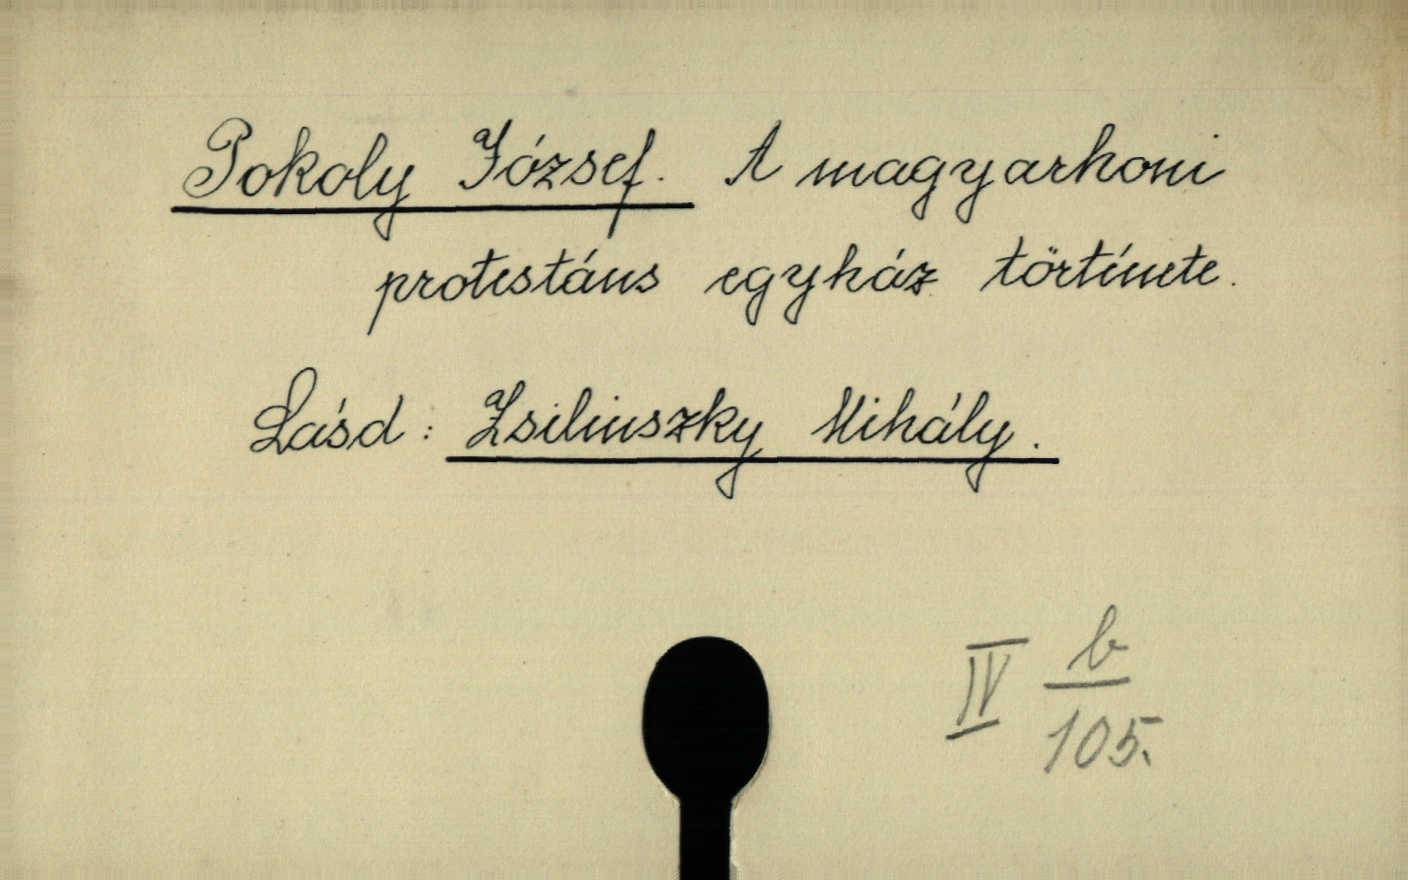 Pokoly József. A magyarhoni
protestáns egyház története.
Lásd: Zsilinszky Mihály.
IV b/105.